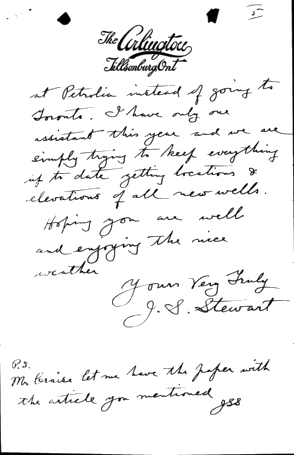 5
The Arlington
Tillsonburg Ont
at Petrolia instead of going to
Toronto. I have only one
assistant this year and we are
simply trying to keep everything
up to date getting locations &
elevations of all new wells.
Hoping you are well
and enjoying the nice
weather
Yours Very Truly
J. S. Stewart
P.S.
Mr let me have the paper with
the article you mentioned
JSS